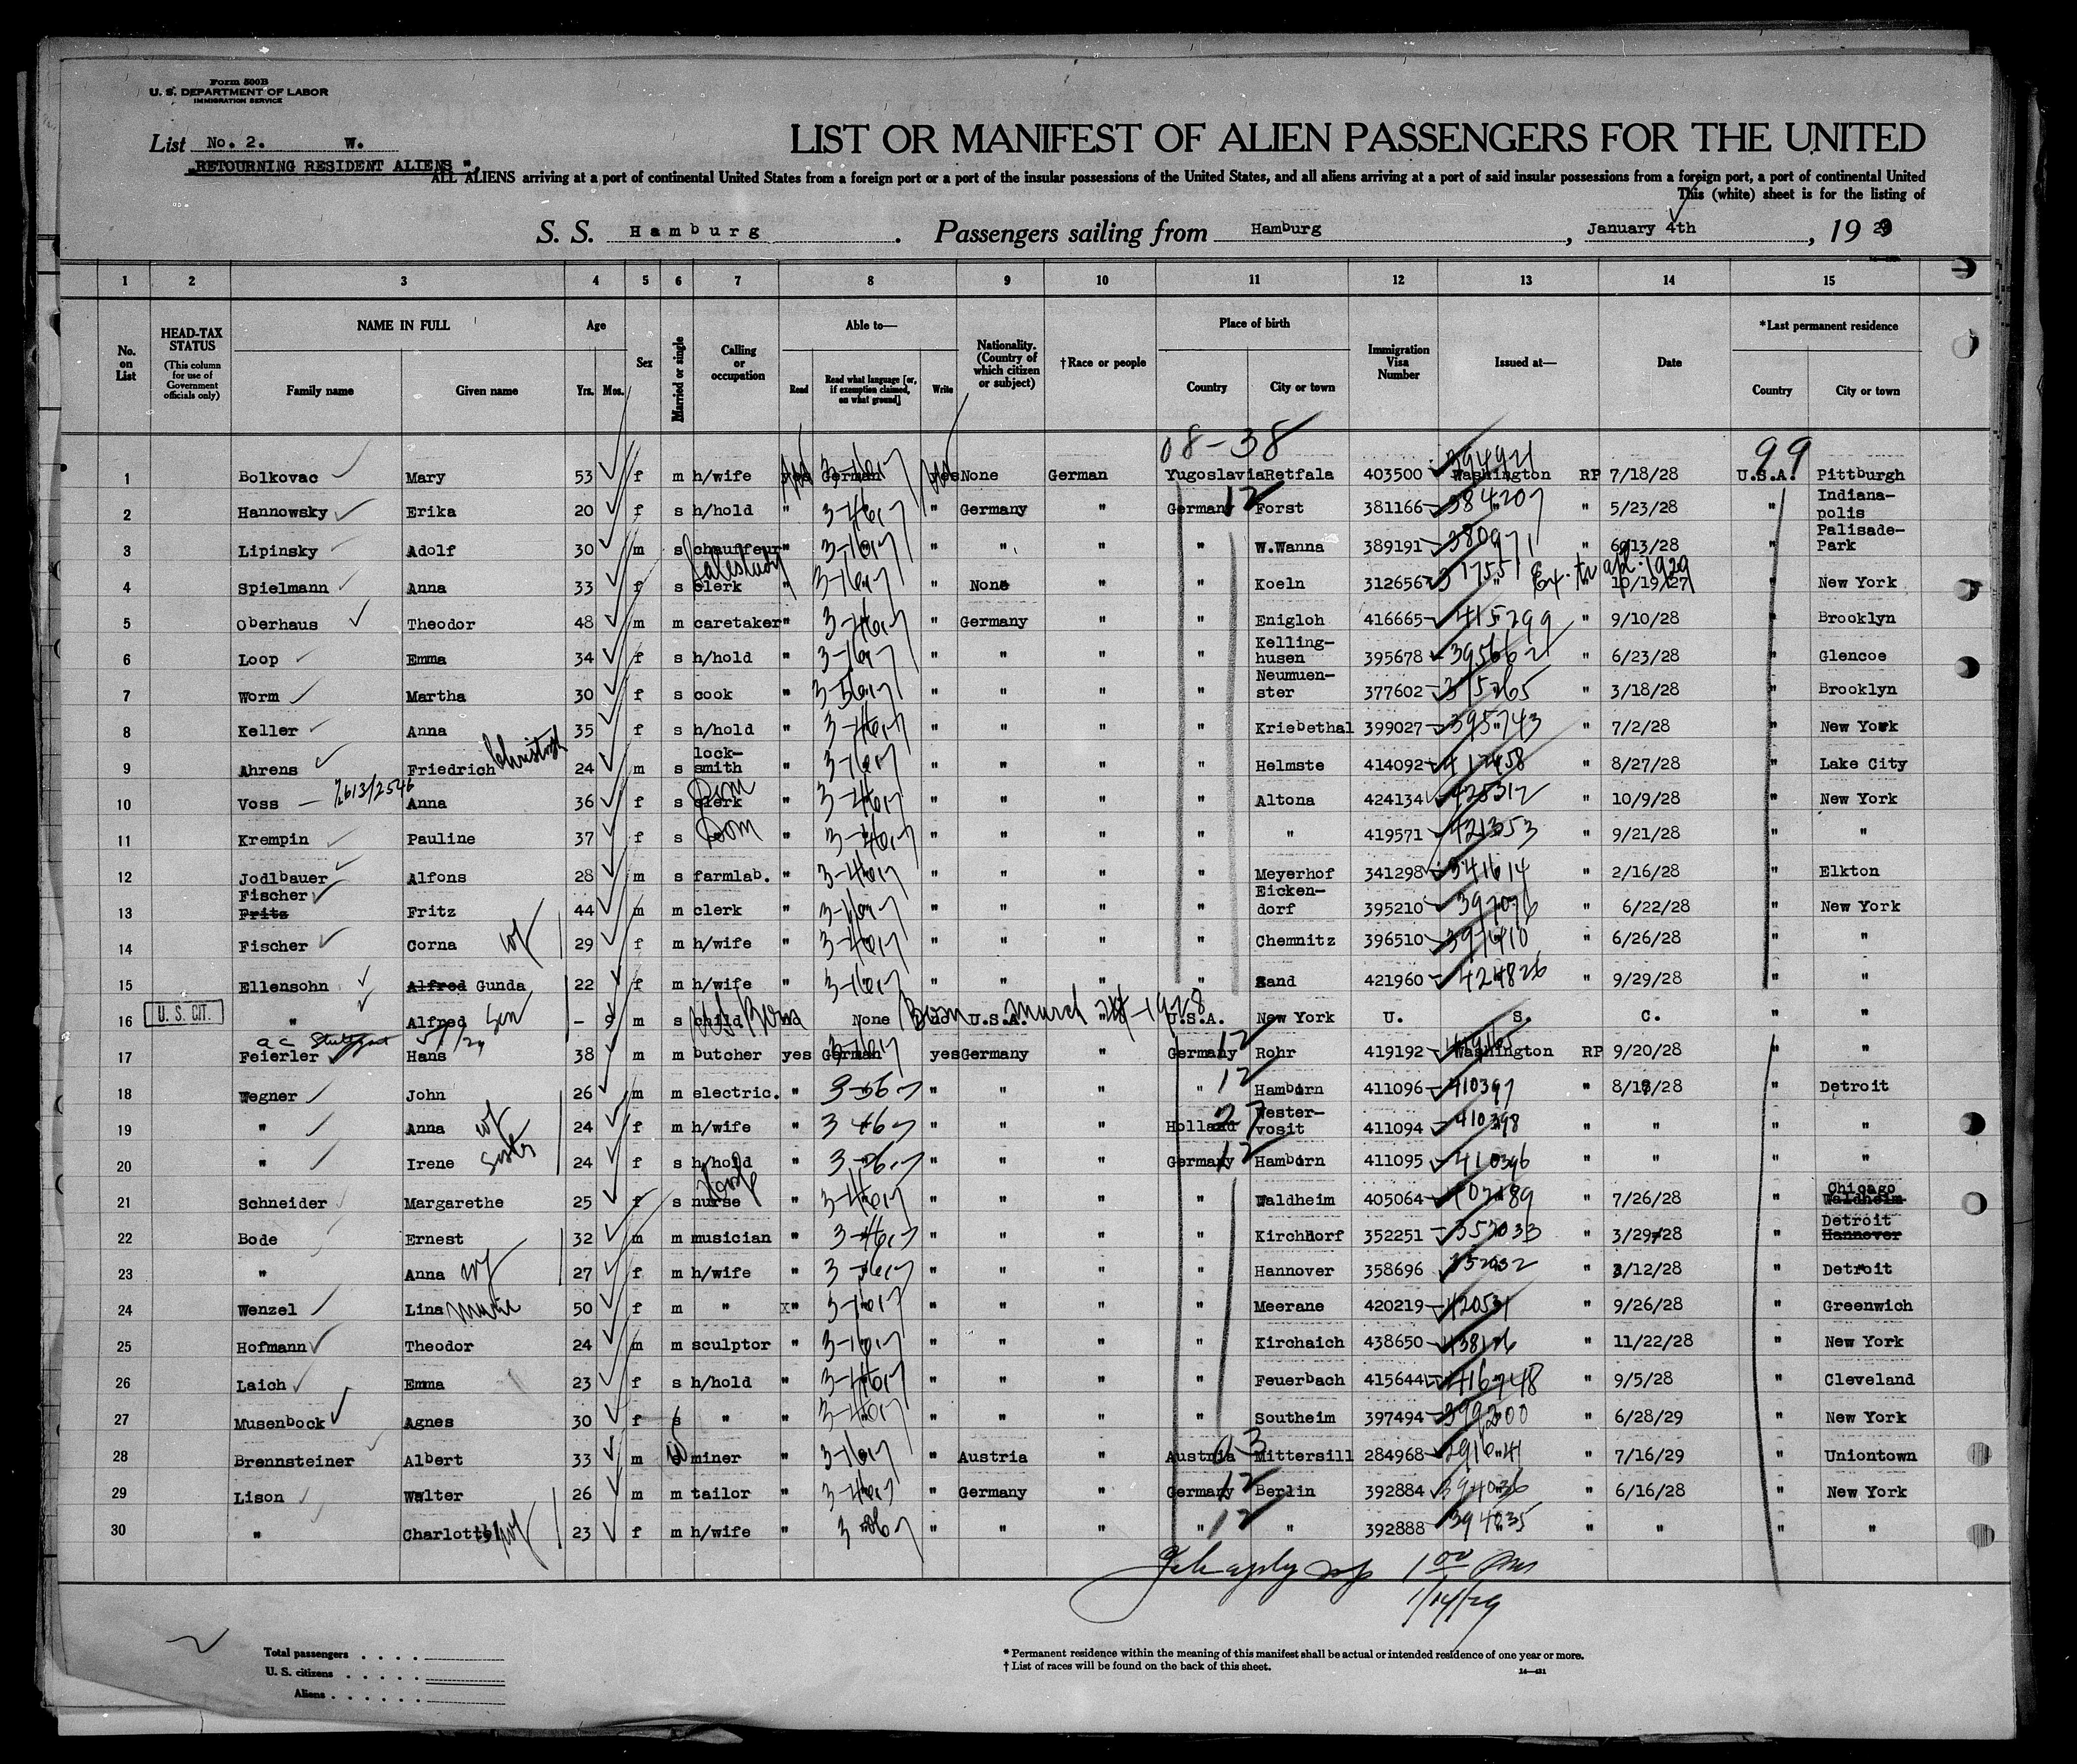 Form 500B
U. S. DEPARTMENT OF LABOR
IMMIGRATION SERVICE
List No. 2. W.
"RETOURNING RESIDENT ALIENS".
LIST OR MANIFEST OF ALIEN PASSENGERS FOR THE UNITED
ALL ALIENS arriving at a port of continental United States from a foreign port or a port of the insular possessions of the United States, and all aliens arriving at a port of said insular possessions from a foreign port, a port of continental United
This (white) sheet is for the listing of
S. S. Hamburg. Passengers sailing from Hamburg, January 4th, 1929
1 2 3 4 5 6 7 8 9 10 11 12 13 14 15
No. on List
HEAD-TAX STATUS (This column for use of Government officials only)
NAME IN FULL Family name Given name
Age Yrs. Mos.
Sex
Married or single
Calling or occupation
Able to— Read Read what language [or, if exemption claimed, on what ground] Write
Nationality. (Country of which citizen or subject)
†Race or people
Place of birth Country City or town
Immigration Visa Number
Issued at—
Date
*Last permanent residence Country City or town
08-38 99
1 Bolkovac Mary 53 f m h/wife yes German yes None German Yugoslavia Retfala 403500 394921 Washington RP 7/18/28 U.S.A. Pittburgh
2 Hannowsky Erika 20 f s h/hold " " Germany " Germany 12 Forst 381166 384207 " 5/23/28 " Indiana-polis
3 Lipinsky Adolf 30 m s chauffeur " " " " " W.Wanna 389191 380971 " 6/13/28 " Palisade-Park
4 Spielmann Anna 33 f s clerk Saleslady " " None " " Koeln 312656 317551 Ex. to apl. 1929 10/19/27 " New York
5 Oberhaus Theodor 48 m m caretaker " " Germany " " Enigloh 416665 415299 " 9/10/28 " Brooklyn
6 Loop Emma 34 f s h/hold " " " " " Kelling-husen 395678 395662 " 6/23/28 " Glencoe
7 Worm Martha 30 f s cook " " " " " Neumuen-ster 377602 375265 " 3/18/28 " Brooklyn
8 Keller Anna 35 f s h/hold " " " " " Kriebethal 399027 395743 " 7/2/28 " New York
9 Ahrens Friedrich Christoph 24 m s lock-smith " " " " " Helmste 414092 412458 " 8/27/28 " Lake City
10 Voss Anna 36 f s clerk Dom " " " " " Altona 424134 425312 " 10/9/28 " New York
11 Krempin Pauline 37 f s Dom " " " " " " 419571 421353 " 9/21/28 " "
12 Jodlbauer Alfons 28 m s farmlab. " " " " " Meyerhof 341298 341614 " 2/16/28 " Elkton
13 Fischer Fritz Fritz 44 m m clerk " " " " " Eicken-dorf 395210 397076 " 6/22/28 " New York
14 Fischer Corna wf 29 f m h/wife " " " " " Chemnitz 396510 " 6/26/28 " "
15 Ellensohn Alfred Gunda 22 f m h/wife " " " " " Sand 421960 424826 " 9/29/28 " "
U. S. CIT.
16 " Alfred Son - 9 m s child US Born None Born March 1928 U.S.A. " U.S.A. New York U. S. C. " "
17 Feierler Hans 38 m m butcher yes German yes Germany " Germany 12 Rohr 419192 Washington RP 9/20/28 " "
18 Wegner John 26 m m electric. " " " " " 12 Hamborn 411096 410397 " 8/18/28 " Detroit
19 " Anna wf 24 f m h/wife " " " " Holland 27 Wester-vosit 411094 410398 " " " "
20 " Irene sister 24 f s h/hold " " " " Germany 12 Hamborn 411095 410396 " " " "
21 Schneider Margarethe 25 f s nurse " " " " " Waldheim 405064 407189 " 7/26/28 " Chicago Waldheim
22 Bode Ernest 32 m m musician " " " " " Kirchdorf 352251 352033 " 3/29/28 " Detroit Hannover
23 " Anna wf 27 f m h/wife " " " " " Hannover 358696 352032 " 3/12/28 " Detroit
24 Wenzel Lina Marie 50 f m " X" " " " " Meerane 420219 420531 " 9/26/28 " Greenwich
25 Hofmann Theodor 24 m m sculptor " " " " " Kirchaich 438650 438126 " 11/22/28 " New York
26 Laich Emma 23 f s h/hold " " " " " Feuerbach 415644 416748 " 9/5/28 " Cleveland
27 Musenbock Agnes 30 f s " " " " " " Southeim 397494 399200 " 6/28/29 " New York
28 Brennsteiner Albert 33 m miner " " Austria " Austria 03 Mittersill 284968 291641 " 7/16/29 " Uniontown
29 Lison Walter 26 m m tailor " " Germany " Germany 12 Berlin 392884 394036 " 6/16/28 " New York
30 " Charlotte wf 23 f m h/wife " " " " " 12 " 392888 394035 " " " "
1 00 pm
1/14/29
Total passengers
U. S. citizens
Aliens
* Permanent residence within the meaning of this manifest shall be actual or intended residence of one year or more.
† List of races will be found on the back of this sheet.
14—421